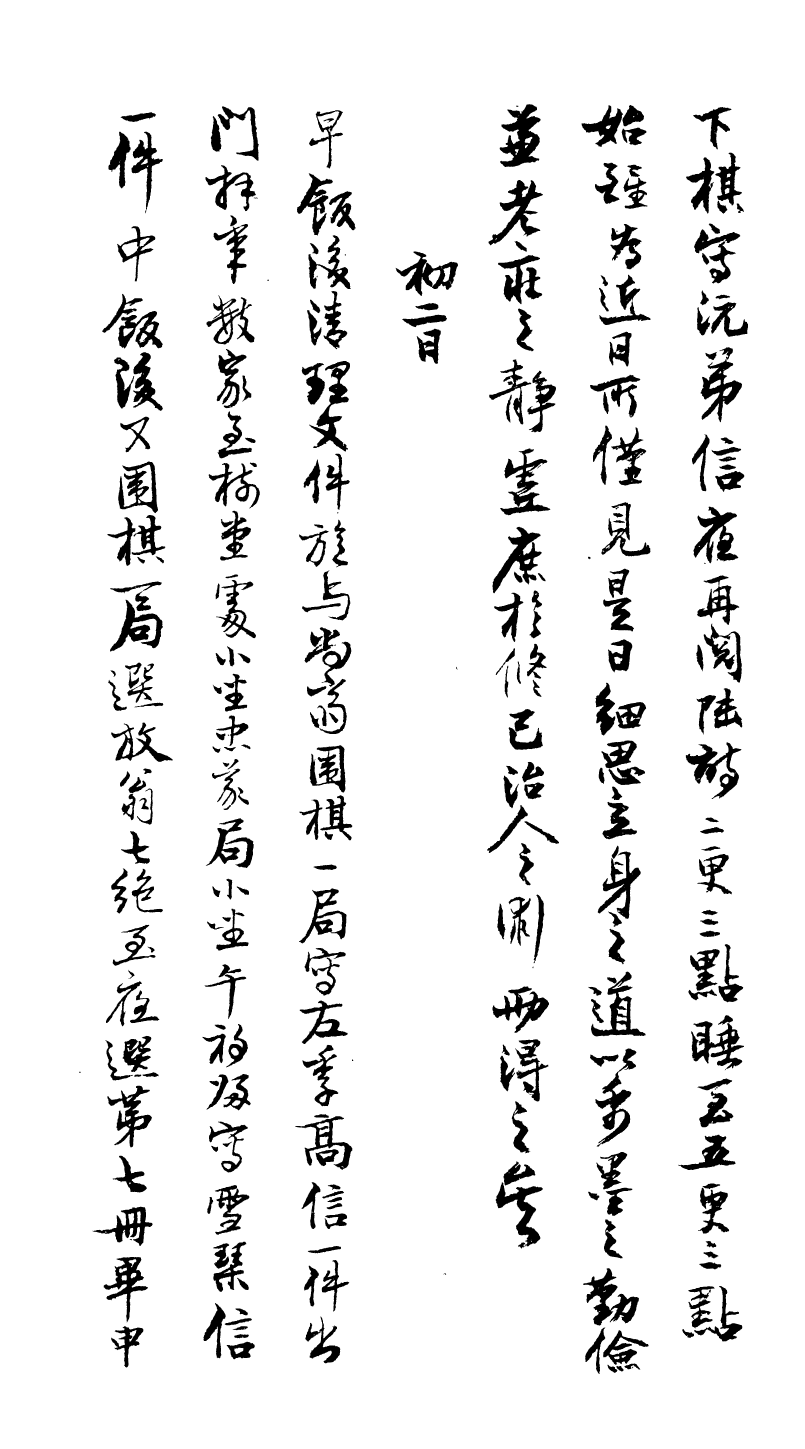 下棋寫沅弟信夜再閱陸詩二更三點睡至五更三點
始醒為近日所僅見是日細思立身之道以禹墨之勤儉
兼老莊之靜虛庶於修己治人之術兩得之矣
初二日
早飯後清理文件旋与尚齋围棋一局寫左季高信一件出
門拜年數家至樹堂處小坐忠義局小坐午初歸寫雪琴信
一件中飯後又围棋一局選放翁七絕至夜選第七冊畢申